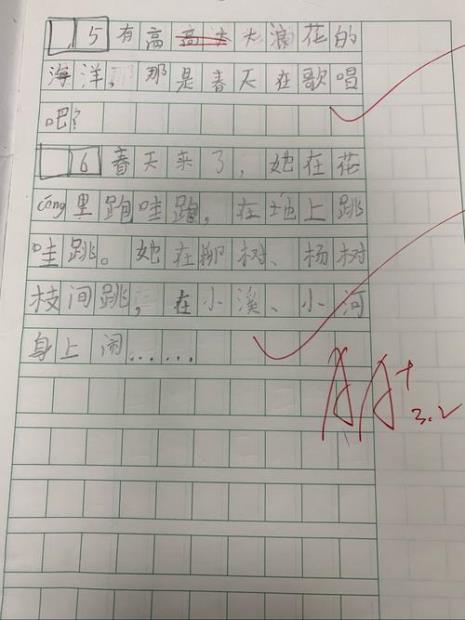 5有高大浪花的
海洋,那是春天在歌唱
吧?
6春天来了,她在花
cóng里跑哇跑,在地上跳
哇跳。她在柳树、杨树
枝间跳,在小溪、小河
身上闹……
AA+
3.2